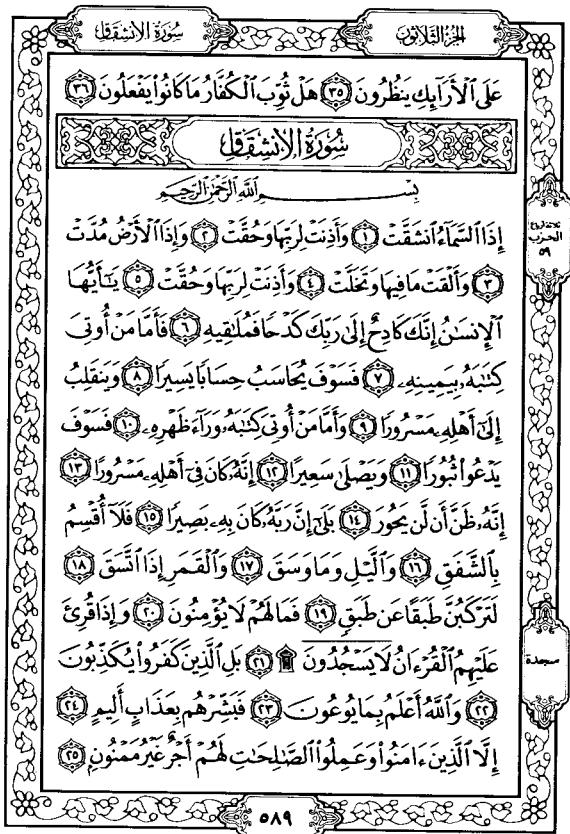 سُورَةُ الانشِقَاقِ
الجُزءُ الثَّلَاثُونَ
عَلَى ٱلْأَرَآئِكِ يَنظُرُونَ ٣٥ هَلْ ثُوِّبَ ٱلْكُفَّارُ مَا كَانُوا۟ يَفْعَلُونَ ٣٦
سُورَةُ الانشِقَاقِ
بِسْمِ ٱللَّهِ ٱلرَّحْمَٰنِ ٱلرَّحِيمِ
إِذَا ٱلسَّمَآءُ ٱنشَقَّتْ ١ وَأَذِنَتْ لِرَبِّهَا وَحُقَّتْ ٢ وَإِذَا ٱلْأَرْضُ مُدَّتْ
٣ وَأَلْقَتْ مَا فِيهَا وَتَخَلَّتْ ٤ وَأَذِنَتْ لِرَبِّهَا وَحُقَّتْ ٥ يَـٰٓأَيُّهَا
ٱلْإِنسَـٰنُ إِنَّكَ كَادِحٌ إِلَىٰ رَبِّكَ كَدْحًا فَمُلَـٰقِيهِ ٦ فَأَمَّا مَنْ أُوتِىَ
كِتَـٰبَهُۥ بِيَمِينِهِۦ ٧ فَسَوْفَ يُحَاسَبُ حِسَابًا يَسِيرًا ٨ وَيَنقَلِبُ
إِلَىٰٓ أَهْلِهِۦ مَسْرُورًا ٩ وَأَمَّا مَنْ أُوتِىَ كِتَـٰبَهُۥ وَرَآءَ ظَهْرِهِۦ ١٠ فَسَوْفَ
يَدْعُوا۟ ثُبُورًا ١١ وَيَصْلَىٰ سَعِيرًا ١٢ إِنَّهُۥ كَانَ فِىٓ أَهْلِهِۦ مَسْرُورًا ١٣
إِنَّهُۥ ظَنَّ أَن لَّن يَحُورَ ١٤ بَلَىٰٓ إِنَّ رَبَّهُۥ كَانَ بِهِۦ بَصِيرًا ١٥ فَلَآ أُقْسِمُ
بِٱلشَّفَقِ ١٦ وَٱلَّيْلِ وَمَا وَسَقَ ١٧ وَٱلْقَمَرِ إِذَا ٱتَّسَقَ ١٨
لَتَرْكَبُنَّ طَبَقًا عَن طَبَقٍ ١٩ فَمَا لَهُمْ لَا يُؤْمِنُونَ ٢٠ وَإِذَا قُرِئَ
عَلَيْهِمُ ٱلْقُرْءَانُ لَا يَسْجُدُونَ ۩ ٢١ بَلِ ٱلَّذِينَ كَفَرُوا۟ يُكَذِّبُونَ
٢٢ وَٱللَّهُ أَعْلَمُ بِمَا يُوعُونَ ٢٣ فَبَشِّرْهُم بِعَذَابٍ أَلِيمٍ ٢٤
إِلَّا ٱلَّذِينَ ءَامَنُوا۟ وَعَمِلُوا۟ ٱلصَّـٰلِحَـٰتِ لَهُمْ أَجْرٌ غَيْرُ مَمْنُونٍۭ ٢٥
ثلاثة أرباع
الحزب
٥٩
سجدة
٥٨٩